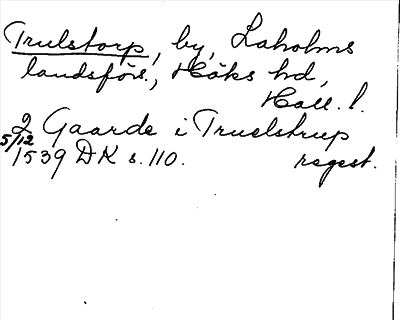 Trulstorp, by, Laholms
landsförs., Höks hd,
Hall. l.
2 Gaarde i Truelstrup
5/12
1539 DK s. 110. regest.